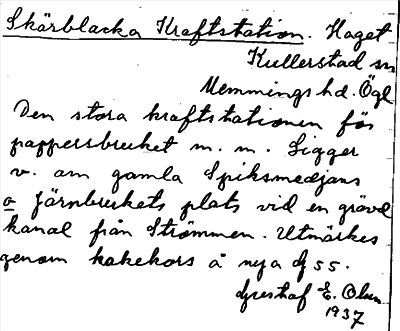 Skärblacka Kraftstation. Haget
Kullerstad sn
Memmings hd. Ögl
Den stora kraftstationen för
pappersbruket m. m. Ligger
v. om gamla Spiksmedjans
o Järnbrukets plats vid en grävd
kanal från Strömmen. Utmärkes
genom hakekors å nya dj 55.
Gustaf E. Olsen
1937